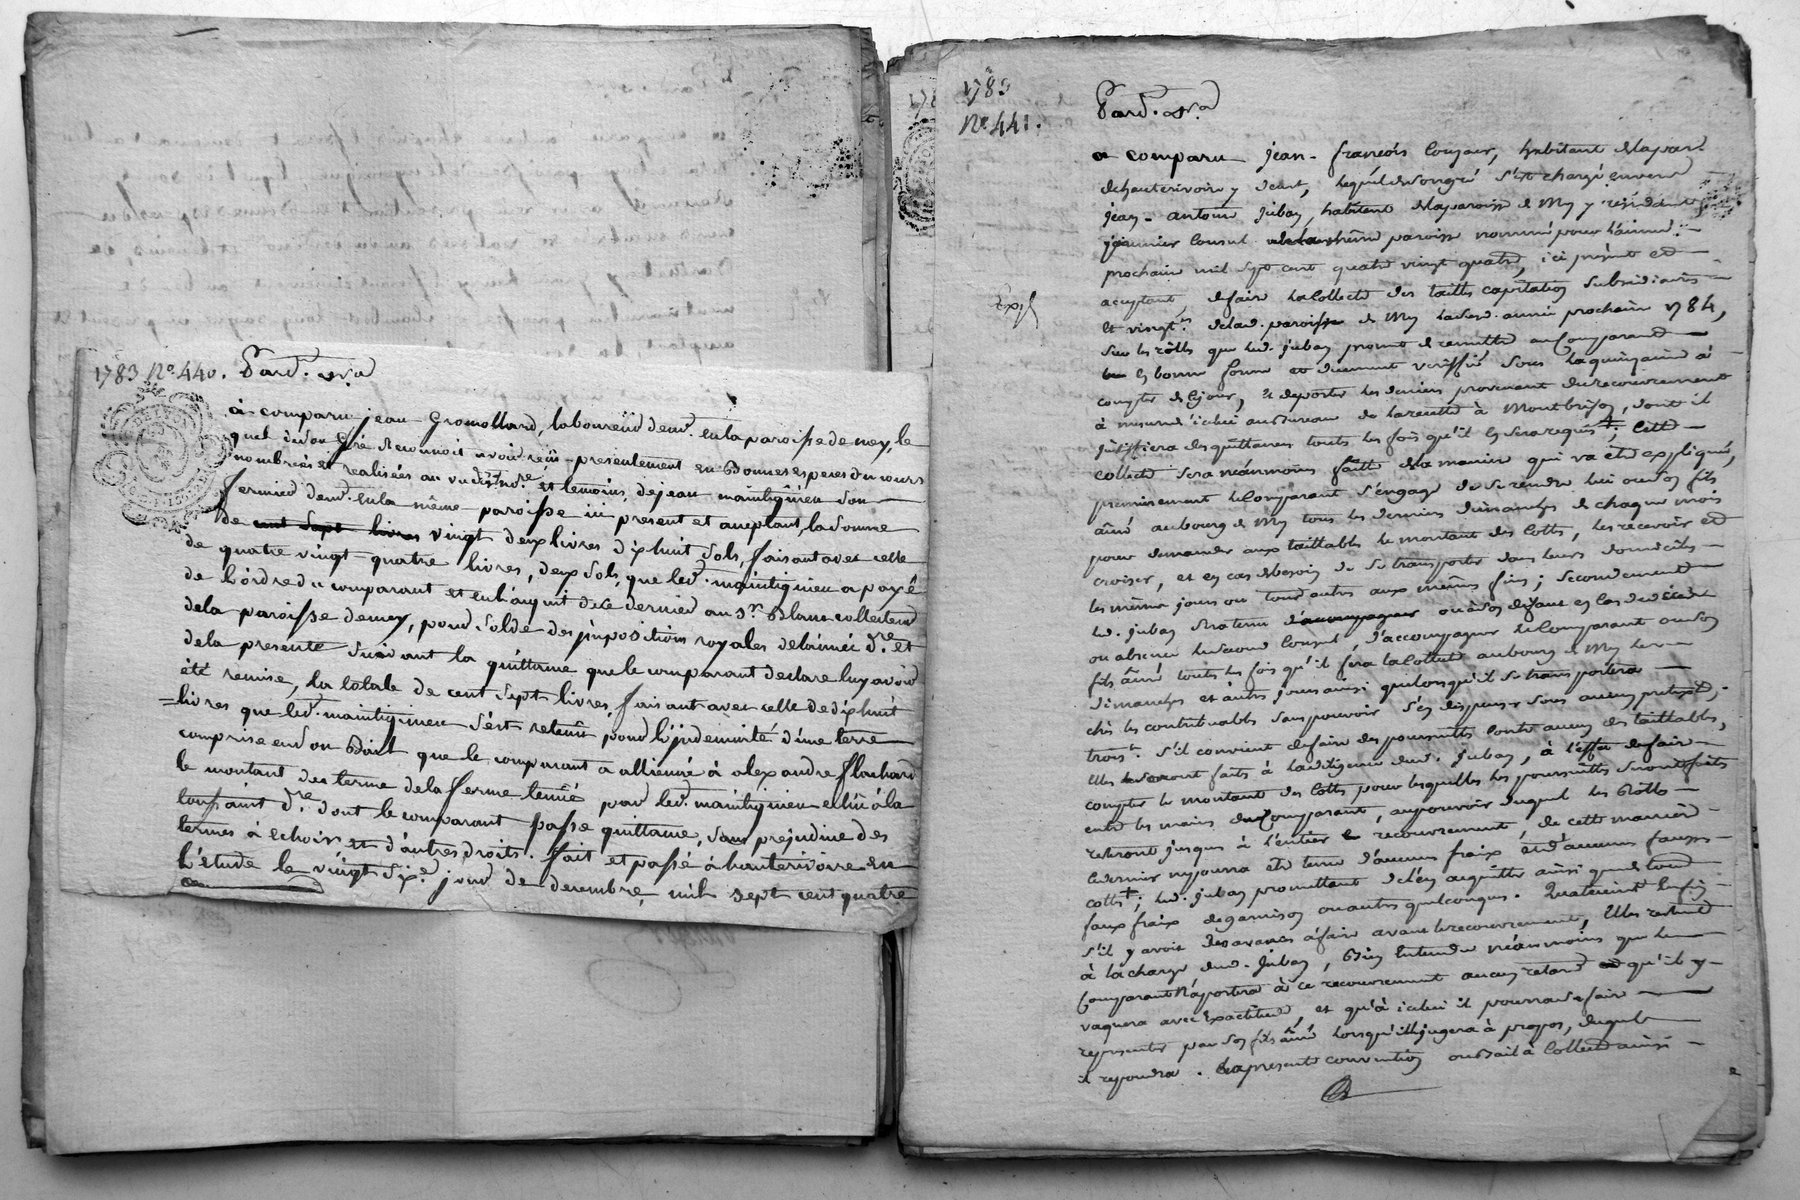 1783 No. 440. Pard. nre
à comparu jean Gromollard, laboureur demt. en la paroisse de nery, le
quel de son Gré Reconnoit avoir reçu presentement en Bonnes especes du cours
nombrées et realisées au vu du nre. et temoins, de jean maintigneu son
fermier demt. en la même paroisse ici present et aceptant, la somme
de cent sept livres vingt deux livres dixhuit sols, faisant avec celle
de quatre vingt quatre livres, deux sols, que led. maintigneu a payé
de l'ordre du comparant et en l'acquit de ce dernier au Sr. Blanc collecteur
de la paroisse de nery, pour solde des impositions royales de l'année dre. et
de la presente suivant la quittance que le comparant declare luy avoir
été remise, la totale de cent sept livres, faisant avec celle de dixhuit
livres que led. maintigneu s'est retenu pour l'indemnité d'une terre
comprise en son Bail que le comparant a allienné à alexandre flachard
le montant du terme de la ferme tenue par led. maintigneu echu à la
toussaint dre. dont le comparant passe quittance, sans prejudice des
termes à echoir et d'autres droits. fait et passé à hauterivoire en
l'étude le vingt sixe. jour de decembre, mil sept cent quatre
1783
No. 441.
Pard. nre
Expé
a comparu jean-françois Conjard, habitant de la par.
de hauterivoire y demt, lequel de son gré s'est chargé envers
jean-antoine Juban, habitant de la paroisse de My y résidant
premier Consul de la même paroisse nommé pour l'année
prochaine mil sept cent quatre vingt quatre, ici present et
acceptant de faire la Collecte des tailles capitation subsidiaires
et vingt. de lad. paroisse de My lad. année prochaine 1784,
sur les rôlles que led. Juban promet de remettre au Comparant
en bonne forme et duement veriffié sous la quinzaine à
compter de ce jour, et de porter les deniers provenant du recouvrement
à mesure d'icelui au bureau de la recette à Montbrison, dont il
justiffiera des quittances toutes les fois qu'il en sera requis, cette
collecte sera néanmoins faitte de la manière qui va être expliquée,
premierement le Comparant s'engage de se rendre lui ou son fils
ainé au bourg de My tous les derniers dimanches de chaque mois
pour demander aux taillables le montant des cottes, les recevoir et
croiser, et en cas de besoin de se transporter dans leurs domiciles
les mêmes jours ou tous autres aux mêmes fins; secondement
led. Juban sera tenu d'accompagner ou à son defaut en cas de
ou absence le second Consul, d'accompagner le Comparant ou son
fils ainé toutes les fois qu'il fera la Collecte au bourg de My les
dimanches et autres jours ainsi que lorsqu'il se transportera
chés les contribuables sans pouvoir s'en dispenser sous aucun pretexte;
troist. s'il convient de faire des poursuittes contre aucun des taillables,
elles seront faits à la diligence dud. Juban, à l'effet de faire
compter le montant des cottes pour lesquelles les poursuittes seront faits
entre les mains du Comparant, au pouvoir duquel les Rolles
resteront jusques à l'entier recouvrement, de cette manière
ce dernier ne pourra être tenu d'aucuns fraix ni d'aucunes fausses
cottes; led. Juban promettant de l'en acquitter ainsi que de tous
faux fraix de garnison ou autres quelconques. Quatriement Enfin
s'il y avoit des avances à faire avant le recouvrement, elles restent
à la charge dud. Juban, Bien Entendu néanmoins que le
Comparant n'aportera à ce recouvrement aucun retard et qu'il y
vaquera avec Exactitude, et qu'à icelui il pourra se faire
representer par son fils ainé lorsqu'il jugera à propos, duquel
il repondra. la presente convention ou bail à Collecte ainsi